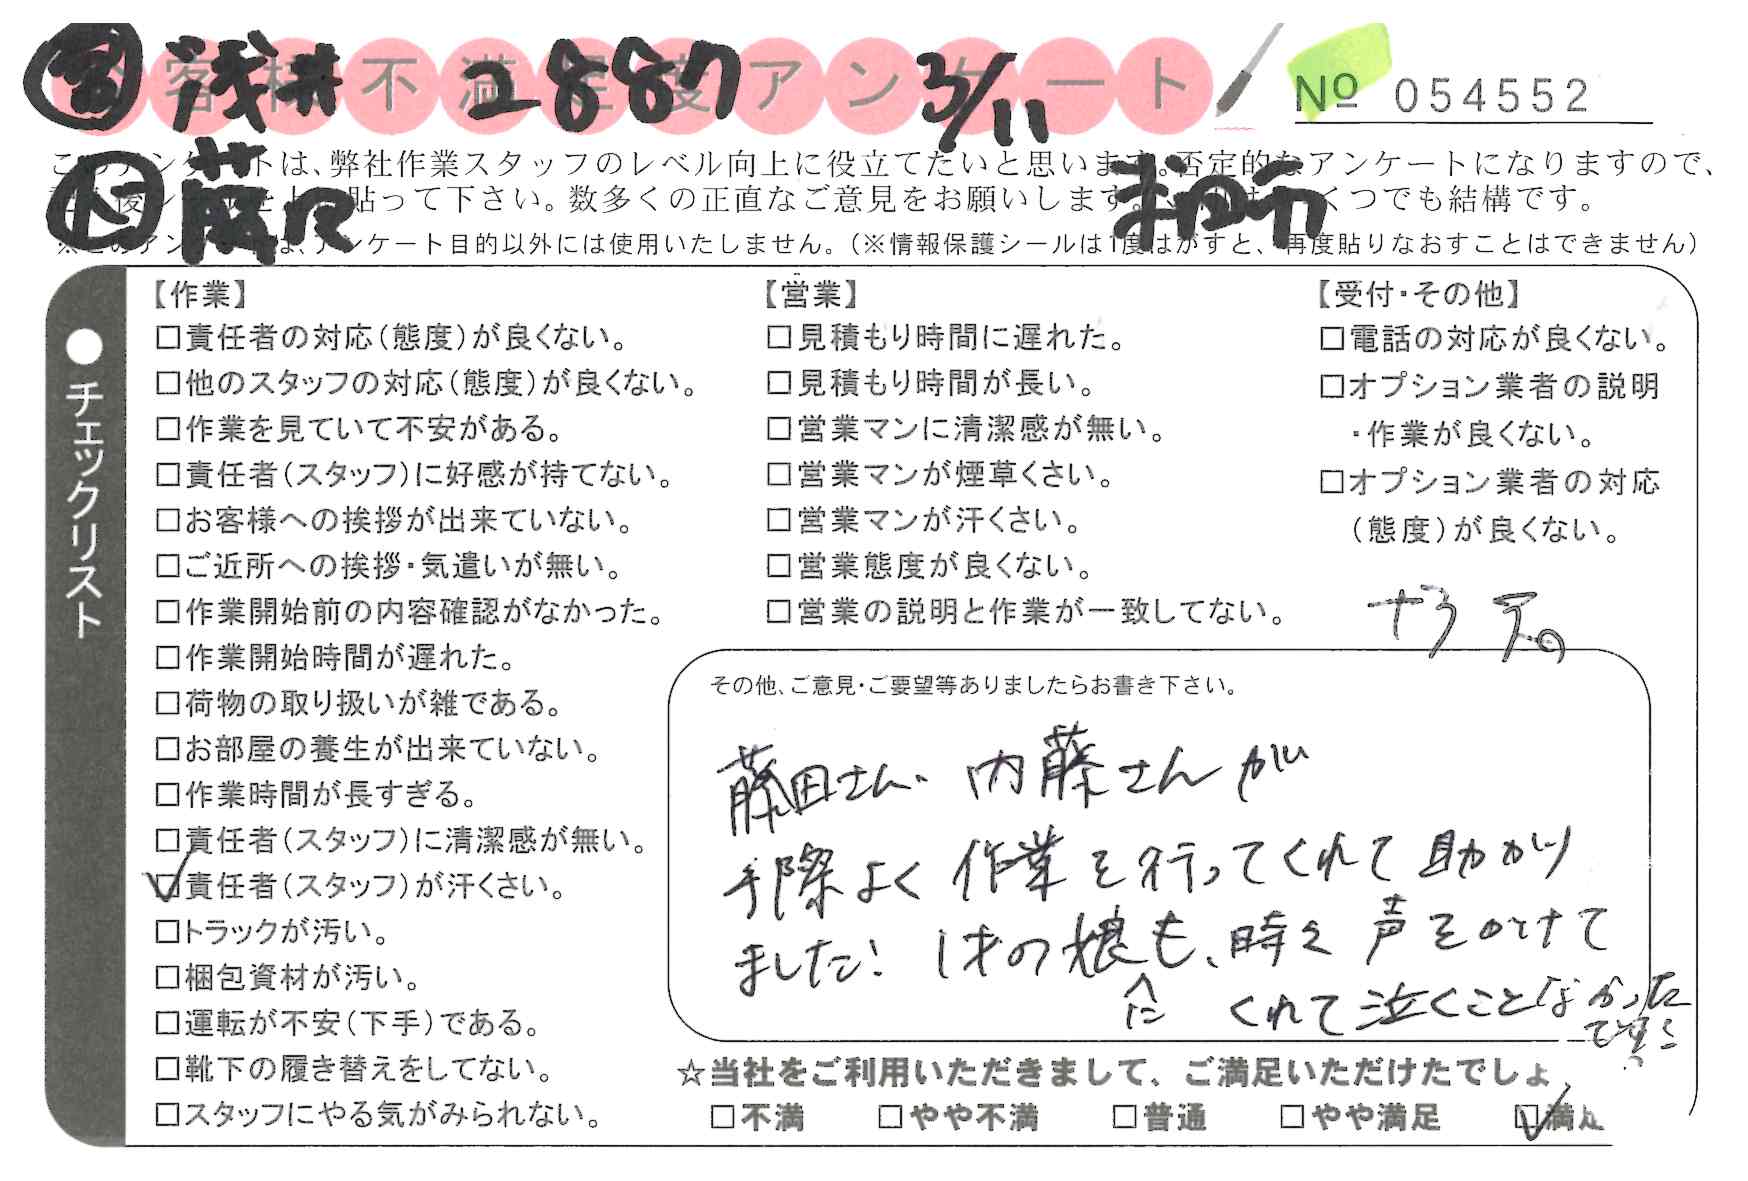 お客様不満足度アンケート
営 浅井 2887 3/11
№ 054552
このアンケートは、弊社作業スタッフのレベル向上に役立てたいと思います。否定的なアンケートになりますので、
貼って下さい。数多くの正直なご意見をお願いします。 くつでも結構です。
※このアンケートは、アンケート目的以外には使用いたしません。（※情報保護シールは1度はがすと、再度貼りなおすことはできません）
●チェックリスト
【作業】
□責任者の対応（態度）が良くない。
□他のスタッフの対応（態度）が良くない。
□作業を見ていて不安がある。
□責任者（スタッフ）に好感が持てない。
□お客様への挨拶が出来ていない。
□ご近所への挨拶・気遣いが無い。
□作業開始前の内容確認がなかった。
□作業開始時間が遅れた。
□荷物の取り扱いが雑である。
□お部屋の養生が出来ていない。
□作業時間が長すぎる。
□責任者（スタッフ）に清潔感が無い。
☑責任者（スタッフ）が汗くさい。
□トラックが汚い。
□梱包資材が汚い。
□運転が不安（下手）である。
□靴下の履き替えをしてない。
□スタッフにやる気がみられない。
【営業】
□見積もり時間に遅れた。
□見積もり時間が長い。
□営業マンに清潔感が無い。
□営業マンが煙草くさい。
□営業マンが汗くさい。
□営業態度が良くない。
□営業の説明と作業が一致してない。
【受付・その他】
□電話の対応が良くない。
□オプション業者の説明
・作業が良くない。
□オプション業者の対応
（態度）が良くない。
その他、ご意見・ご要望等ありましたらお書き下さい。
藤田さん、内藤さんが
手際よく作業を行ってくれて助かり
ました！ 1才の娘にも、時々声をかけて
くれて泣くことなかった
です！
☆当社をご利用いただきまして、ご満足いただけたでしょ
□不満 □やや不満 □普通 □やや満足 ☑満足